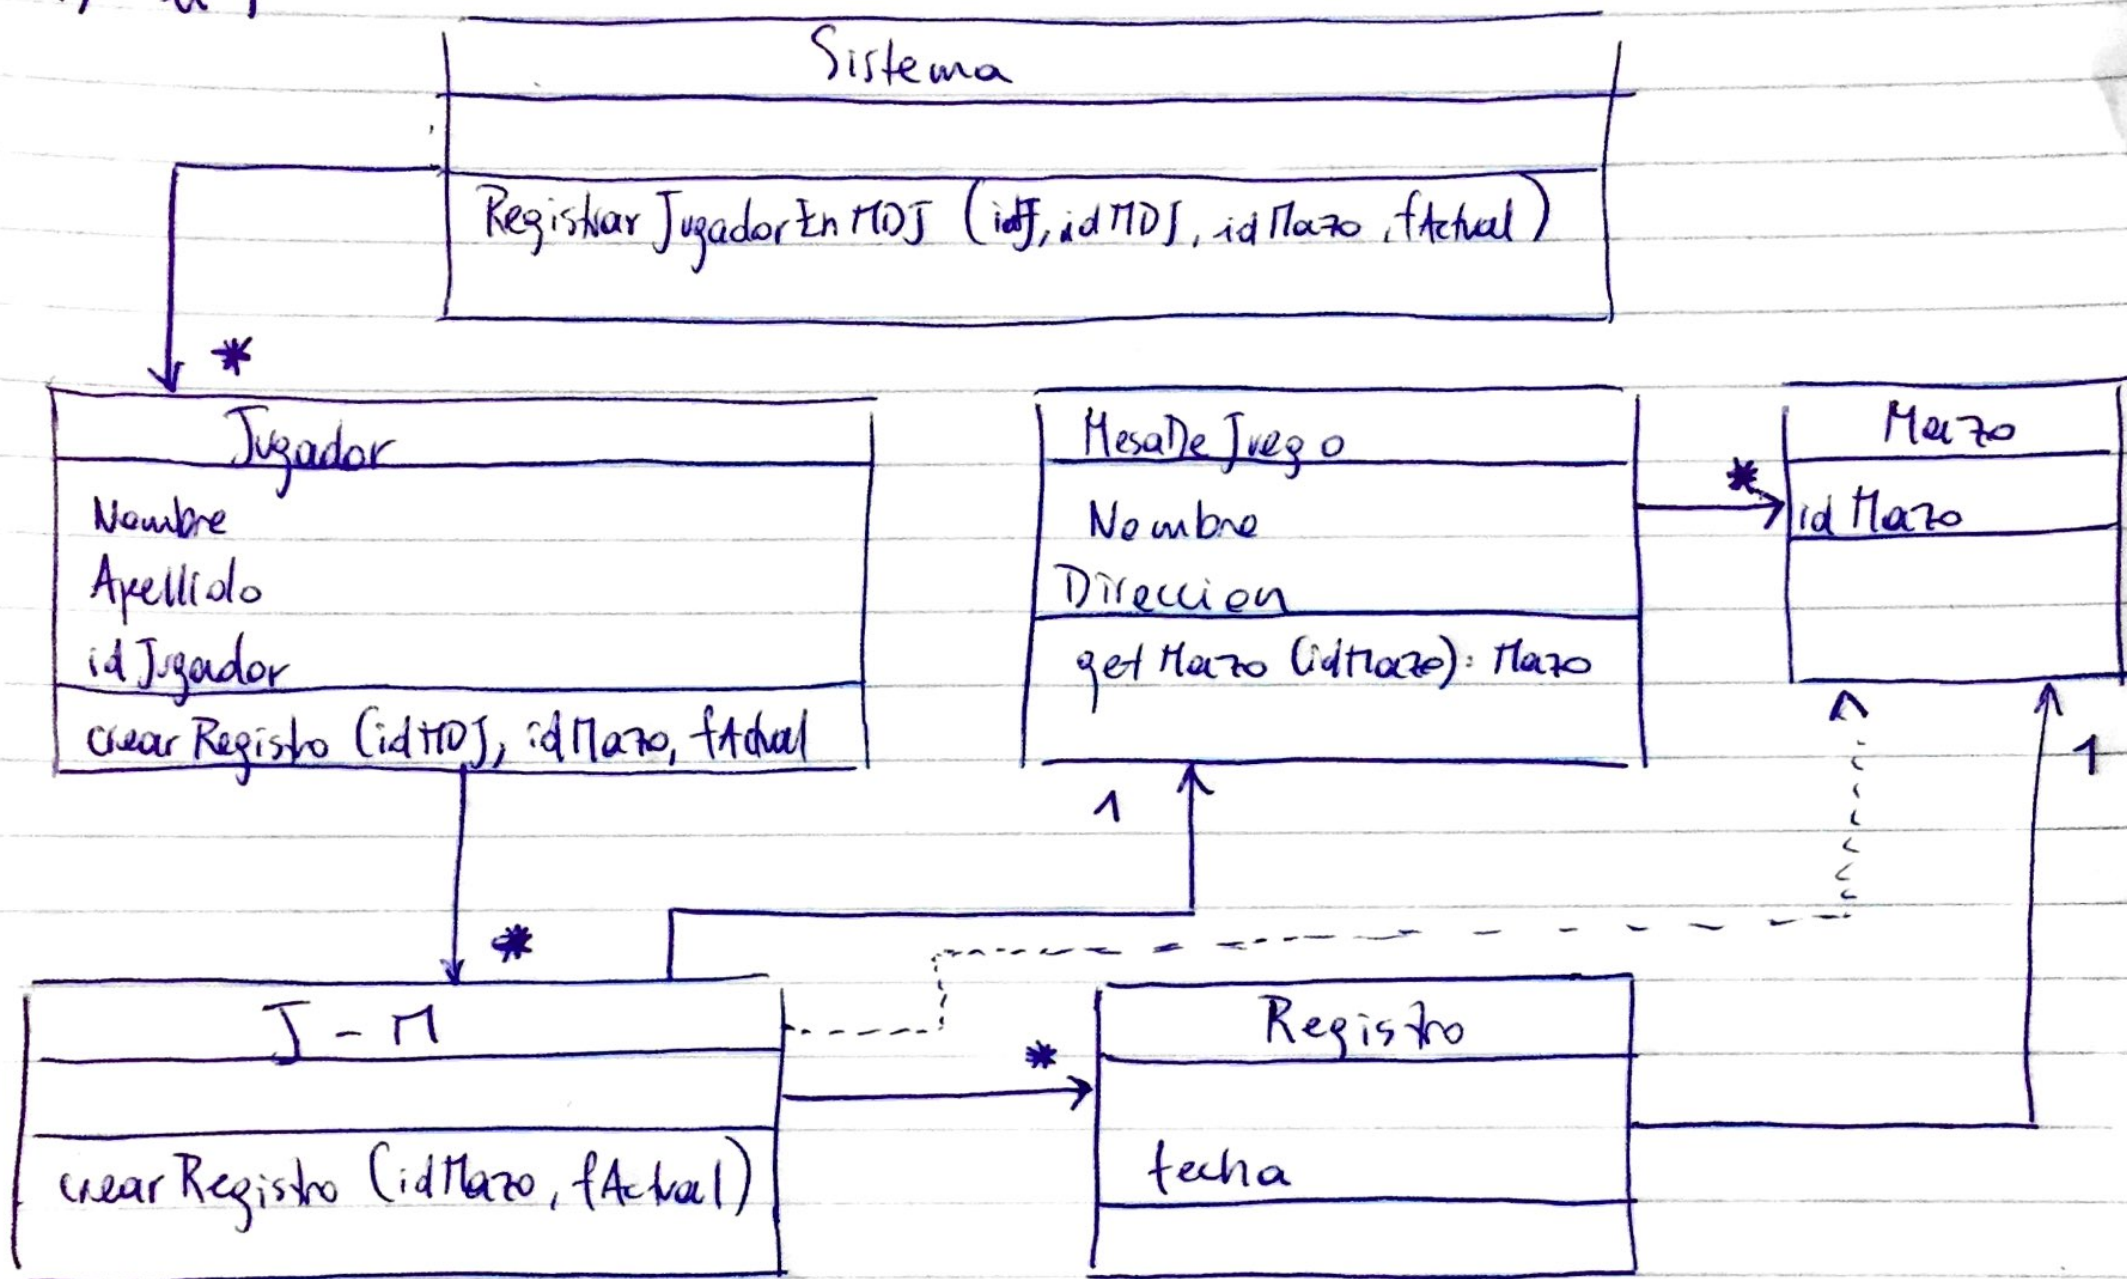 Sistema
RegistrarJugadorEnMDJ (idJ, idMDJ, idMazo, fActual)
*
Jugador
Nombre
Apellido
idJugador
crearRegistro (idMDJ, idMazo, fActual
MesaDeJuego
Nombre
Direccion
getMazo (idMazo): Mazo
*
Mazo
idMazo
1
1
*
J - M
crearRegistro (idMazo, fActual)
*
Registro
fecha